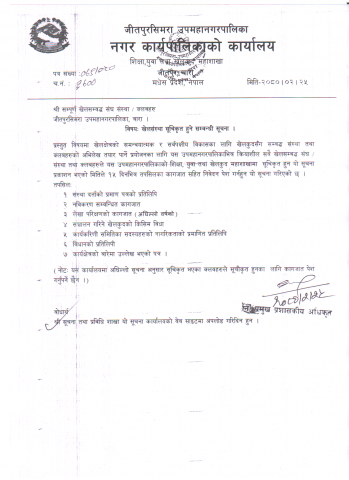 जीतपुरसिमरा उपमहानगरपालिका
नगर कार्यपालिकाको कार्यालय
शिक्षा, युवा तथा खेलकुद महाशाखा
जीतपुर, बारा
मधेस प्रदेश, नेपाल
पत्र संख्या
च.नं.
मिति-२०८०।०२।२५
श्री सम्पूर्ण खेलसम्बद्ध संघ संस्था / क्लबहरु
जीतपुरसिमरा उपमहानगरपालिका, बारा ।
विषयः खेलसंस्था सूचिकृत हुने सम्बन्धी सूचना ।
प्रस्तुत विषयमा खेलक्षेत्रको समन्वयात्मक र सर्वपक्षीय विकासका लागि खेलकुदसँग सम्बद्ध संस्था तथा
क्लबहरुको अभिलेख तयार पार्ने प्रयोजनका लागि यस उपमहानगरपालिकाभित्र क्रियाशील सबै खेलसम्बद्ध संघ ।
संस्था तथा क्लबहरुले यस उपमहानगरपालिकाको शिक्षा, युवा तथा खेलकुद महाशाखामा सूचिकृत हुन यो सूचना
प्रकाशन भएको मितिले १५ दिनभित्र तपसिलका कागजात सहित निवेदन पेश गर्नुहुन यो सूचना गरिएको छ ।
तपसिलः
१ संस्था दर्ताको प्रमाण पत्रको प्रतिलिपि
२ नविकरण सम्बन्धित कागजात
३ लेखा परिक्षणको कागजात (अघिल्लो वर्षको)
४ सञ्चालन गरिने खेलकुदको किसिम विधा
५ कार्यकारिणी समितिका सदस्यहरुको नागरिकताको प्रमाणित प्रतिलिपि
६ विधानको प्रतिलिपी
७ कार्यक्षेत्रको बारेमा उल्लेख भएको पत्र ।
(नोटः यस कार्यालयमा अघिल्लो सूचना अनुसार सूचिकृत भएका क्लबहरुले सूचीकृत हुनका लागि कागजात पेश
गर्नुपर्ने छैन ।)
प्रमुख प्रशासकीय अधिकृत
बोधार्थ
श्री सूचना तथा प्रविधि शाखा यो सूचना कार्यालयको वेब साइटमा अपलोड गरिदिन हुन ।